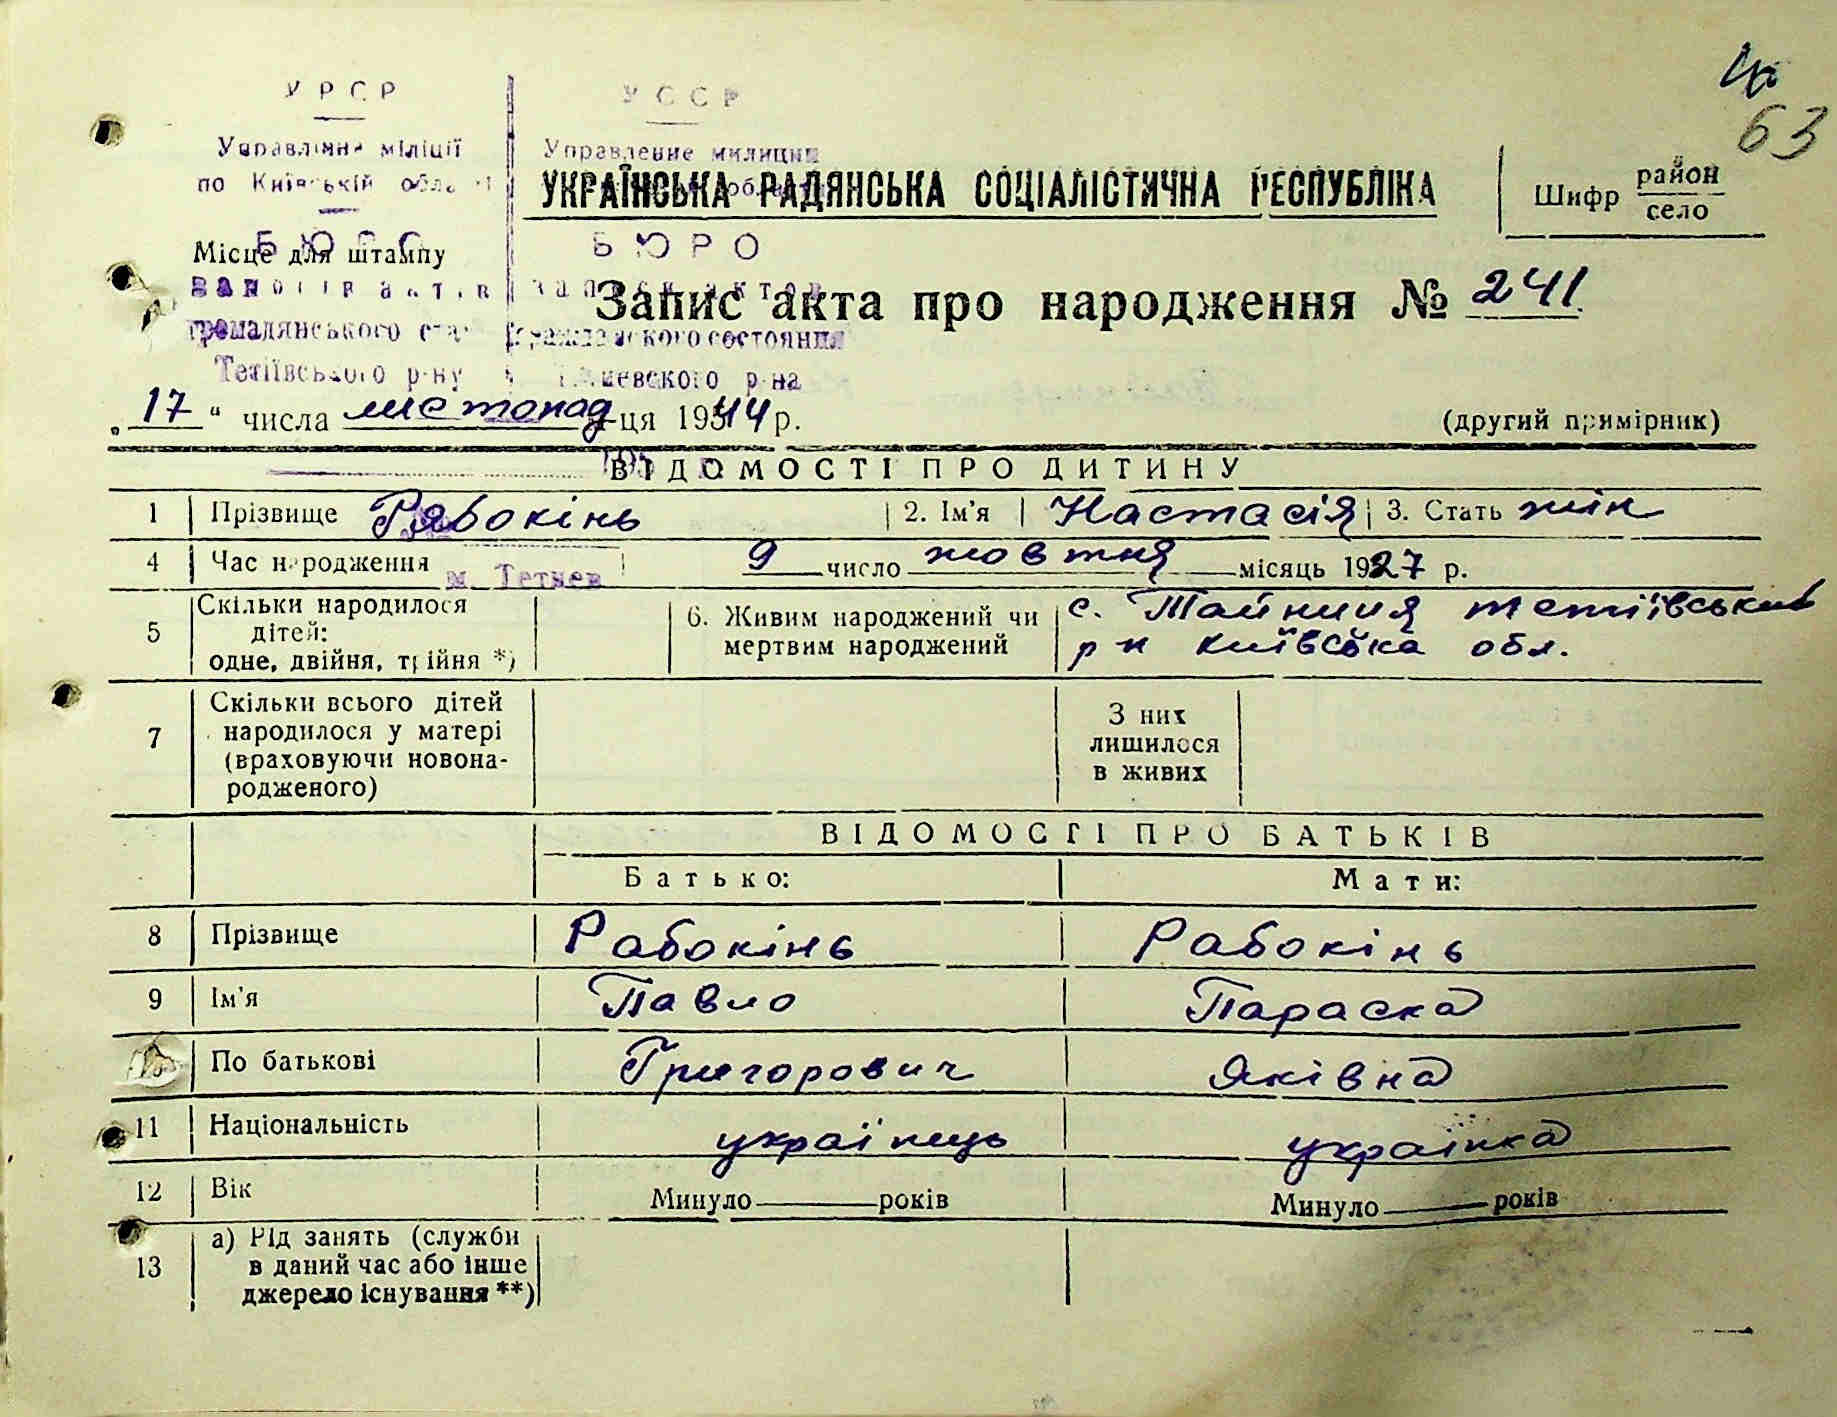 63
УРСР
УССР
Управління міліції
Управление милиции
по Київській області
УКРАЇНСЬКА РАДЯНСЬКА СОЦІАЛІСТИЧНА РЕСПУБЛІКА
Шифр район
село
БЮРО
БЮРО
Місце для штампу
записів актів
записи актов
Запис акта про народження № 241
громадянського стану
гражданского состояния
Тетіївського р-ну
Тетиевского р-на
„17“ числа листопад м-ця 1944 р.
(другий примірник)
ВІДОМОСТІ ПРО ДИТИНУ
1 Прізвище Рябокінь 2. Ім'я Настасія 3. Стать жін
4 Час народження 9 число жовтня місяць 1927 р.
м. Тетиев
5 Скільки народилося дітей: одне, двійня, трійня *)
6. Живим народжений чи мертвим народжений
с. Тайниця тетіївський
р-н київська обл.
7 Скільки всього дітей народилося у матері (враховуючи новонародженого)
З них лишилося в живих
ВІДОМОСТІ ПРО БАТЬКІВ
Батько: Мати:
8 Прізвище Рабокінь Рабокінь
9 Ім'я Павло Параска
По батькові Григорович Яківна
11 Національність українець українка
12 Вік Минуло ——— років Минуло ——— років
13 а) Рід занять (служби в даний час або інше джерело існування **)